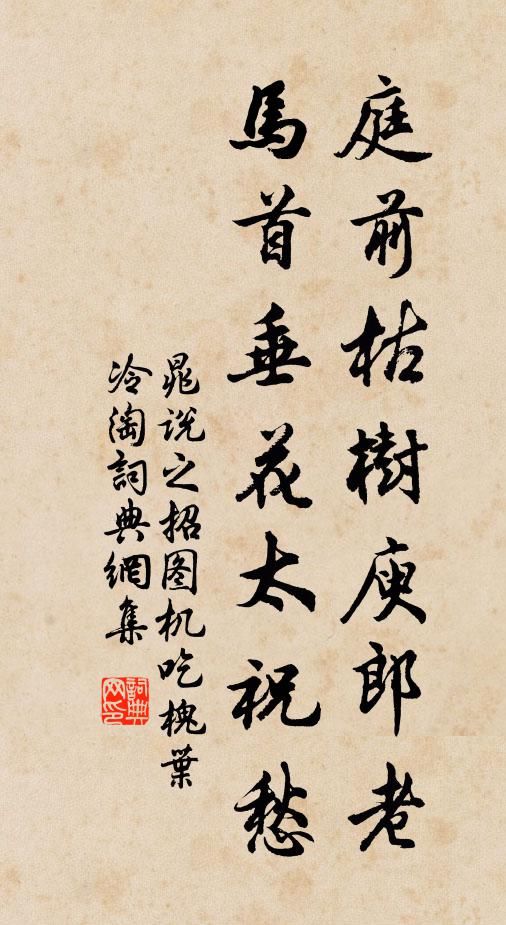 庭前枯樹庾郎老
馬首垂花太祝愁
晁说之招图机吃槐葉
冷淘詞典網集
詞典
网印